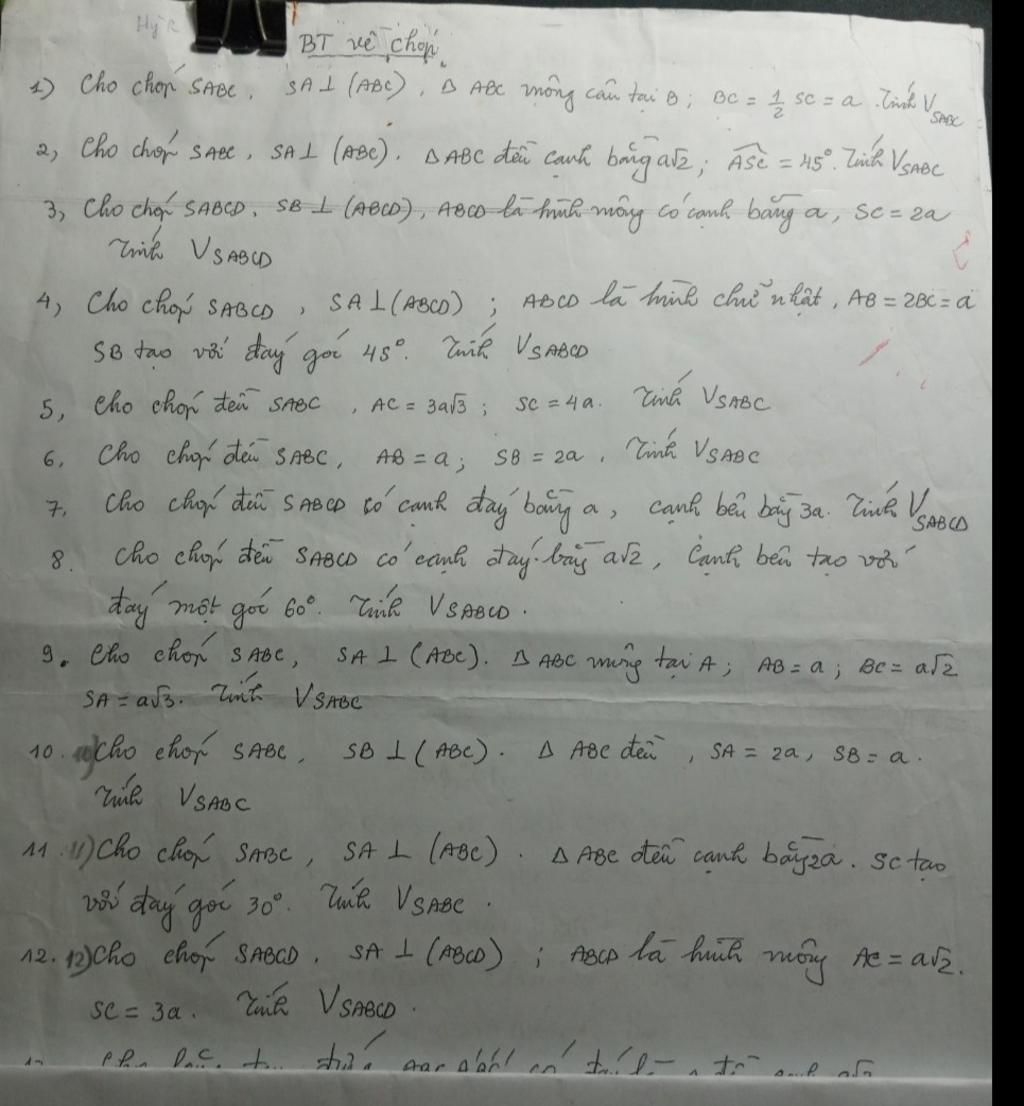 BT về chóp.
1) Cho chóp SABC, SA ⊥ (ABC), Δ ABC vuông cân tại B; BC = 1/2 SC = a. Tính V_SABC
2, Cho chóp SABC, SA ⊥ (ABC). Δ ABC đều cạnh bằng a√2; ASC = 45°. Tính V_SABC
3, Cho chóp SABCD, SB ⊥ (ABCD), ABCD là hình vuông có cạnh bằng a, SC = 2a
Tính V_SABCD
4, Cho chóp SABCD, SA ⊥ (ABCD); ABCD là hình chữ nhật, AB = 2BC = a
SB tạo với đáy góc 45°. Tính V_SABCD
5, Cho chóp đều SABC, AC = 3a√3; SC = 4a. Tính V_SABC
6, Cho chóp đều SABC, AB = a; SB = 2a, Tính V_SABC
7, Cho chóp đều SABCD có cạnh đáy bằng a, cạnh bên bằng 3a. Tính V_SABCD
8. Cho chóp đều SABCD có cạnh đáy bằng a√2, cạnh bên tạo với
đáy một góc 60°. Tính V_SABCD.
9. Cho chóp SABC, SA ⊥ (ABC). Δ ABC vuông tại A; AB = a; BC = a√2
SA = a√3. Tính V_SABC
10. Cho chóp SABC, SB ⊥ (ABC). Δ ABC đều, SA = 2a, SB = a.
Tính V_SABC
11. 11) Cho chóp SABC, SA ⊥ (ABC). Δ ABC đều cạnh bằng 2a. SC tạo
với đáy góc 30°. Tính V_SABC.
12. 12) Cho chóp SABCD, SA ⊥ (ABCD); ABCD là hình vuông AC = a√2.
SC = 3a. Tính V_SABCD.